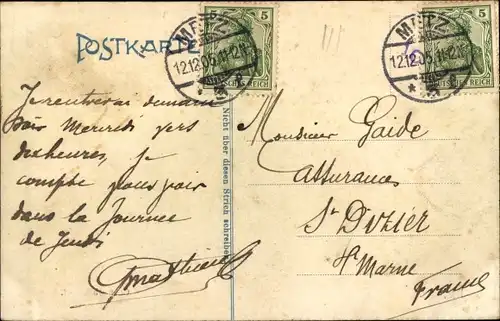 POSTKARTE
METZ
12.12.05.
5
METZ
12.12.05.
5
Je rentrerai demain
soir Mercredi vers
dix heures, je
compte vous voir
dans la Journée
de Jeudi
Nicht über diesen Strich schreiben
Monsieur Gaide
assurances
St Dizier
Hte Marne
France